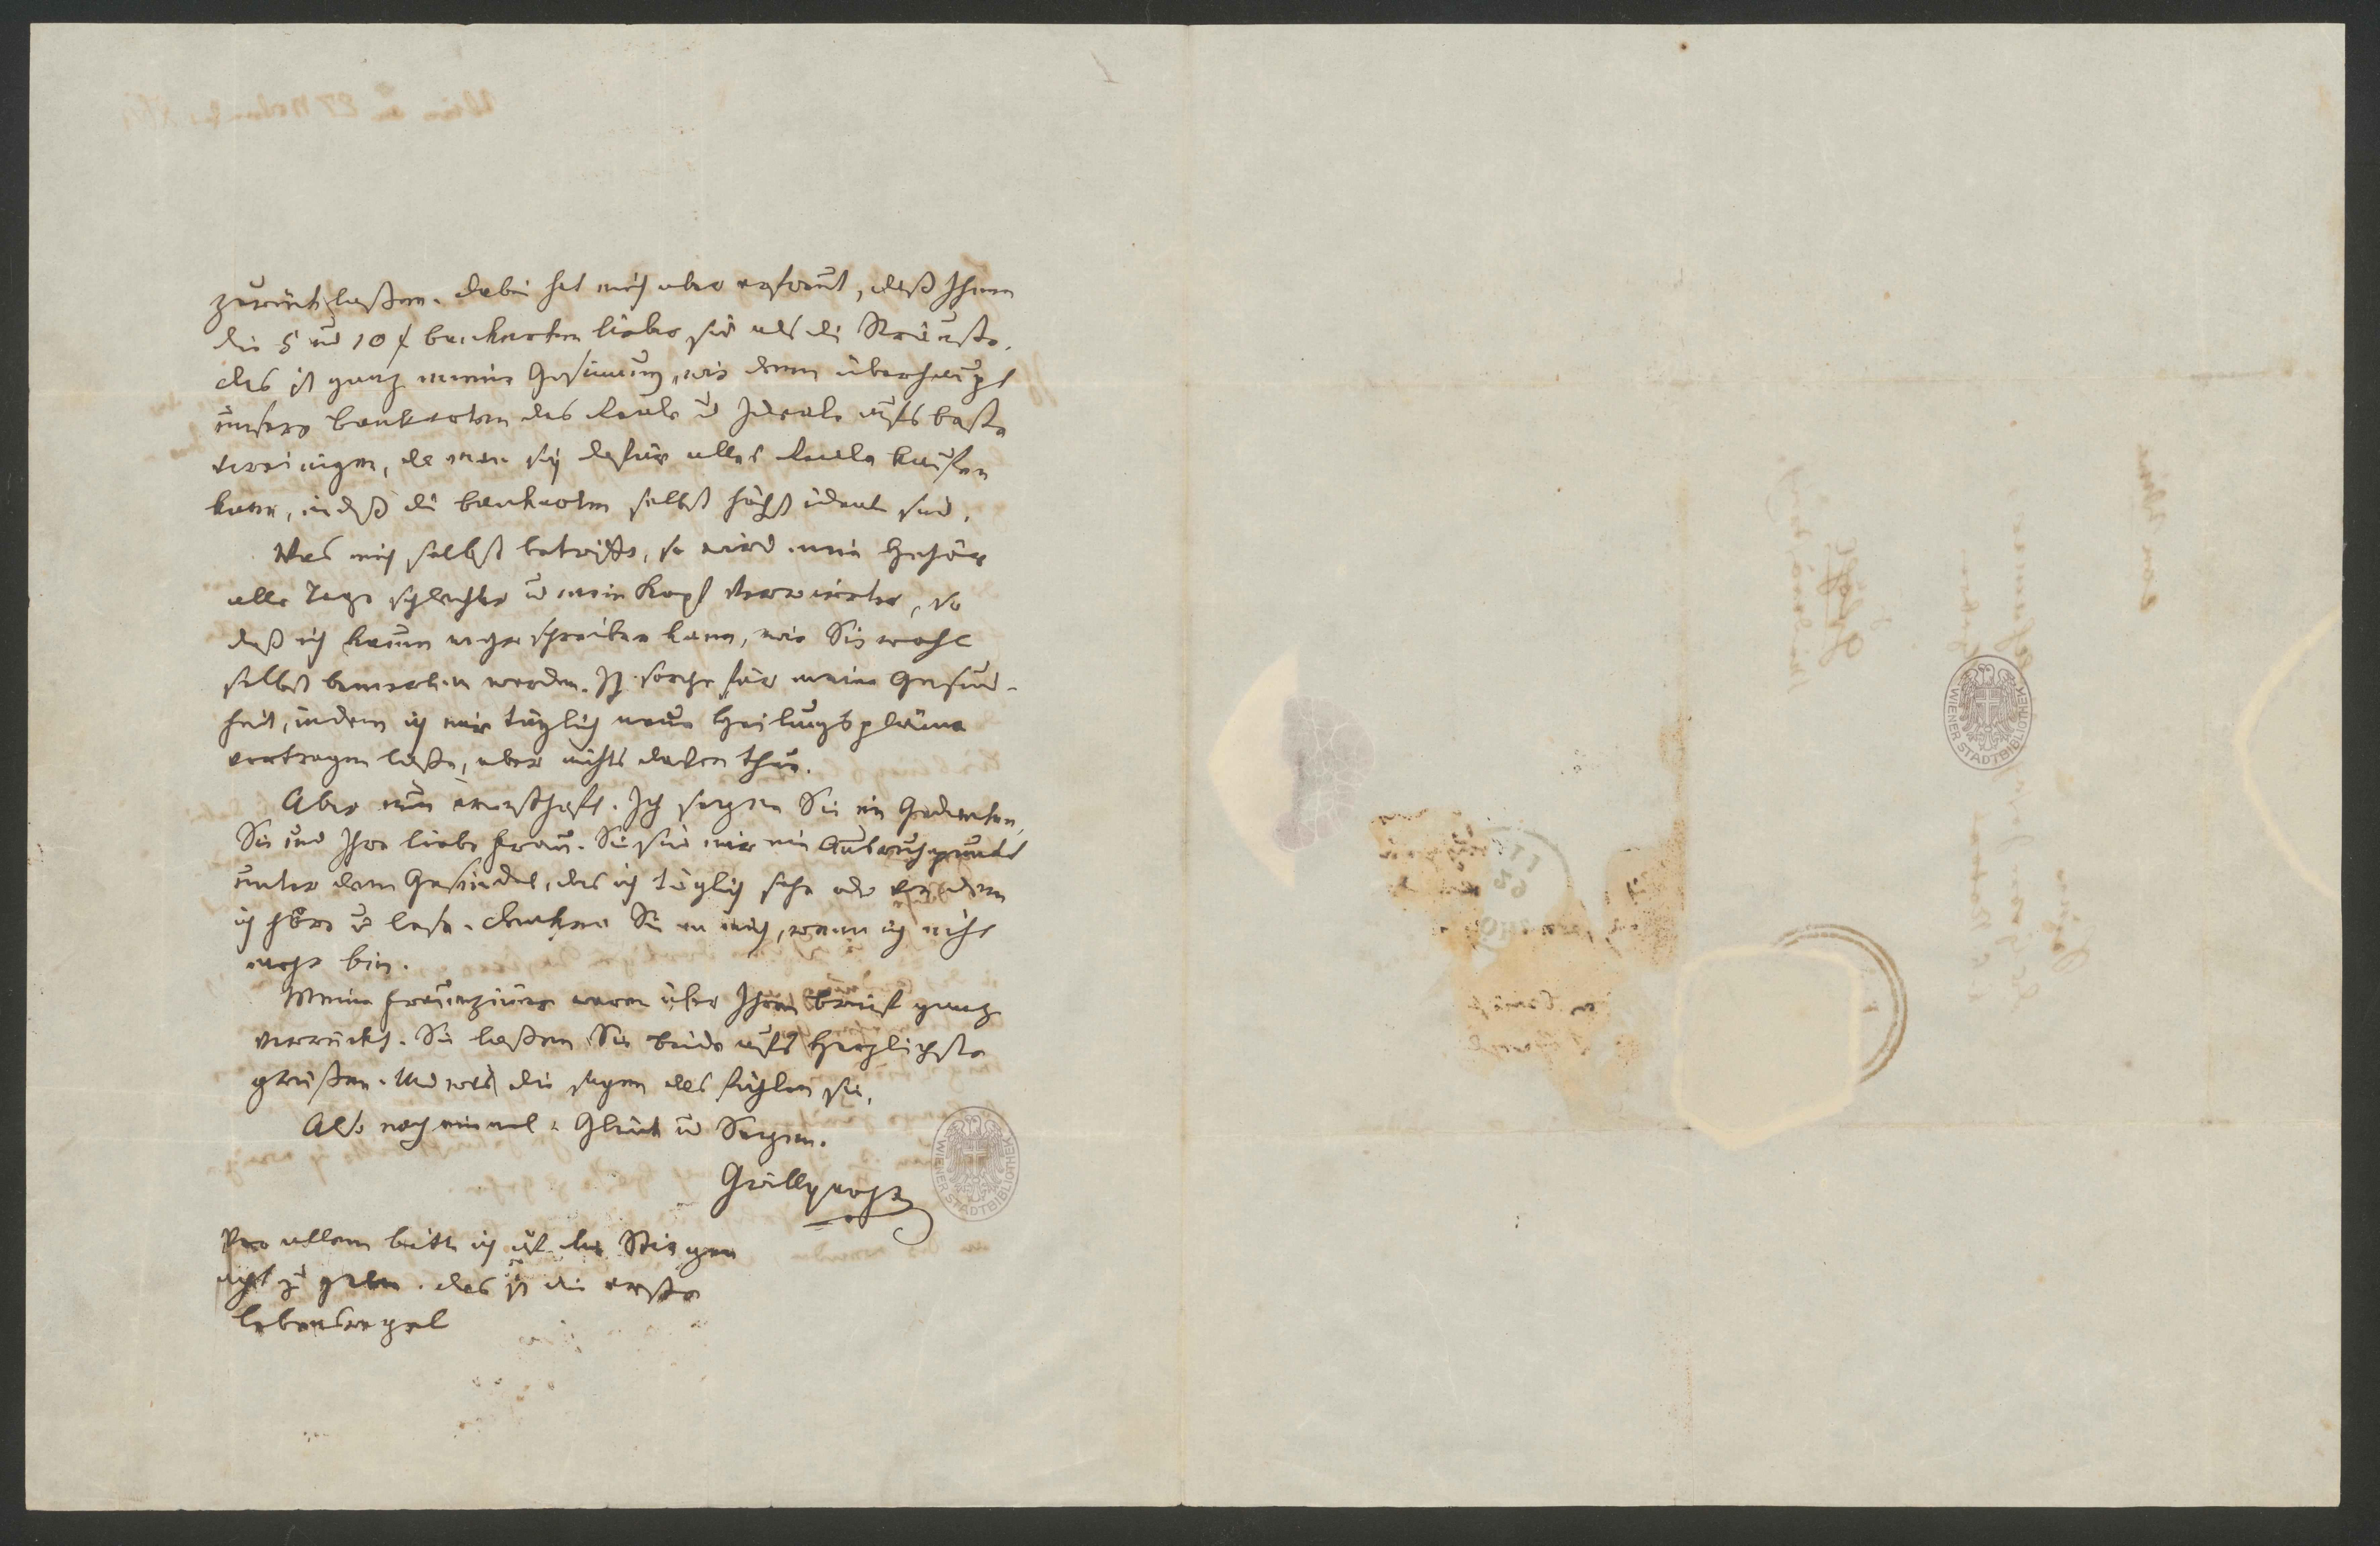 zurücklaßen. Dabei hat mich aber erfreut, daß Ihnen
die 5 und 10 f Banknoten lieber sind als die Sträuße.
das ist ganz meine Gesinnung, wie denn überhaupt
unsere Banknoten das Reale u Ideale aufs beste
vereinigen, da man sich dafür alles Reale kaufen
kann, indeß die Banknoten selbst höchst ideal sind.
Was mich selbst betrifft, so wird mein Gehör
alle Tage schlechter u mein Kopf verwirrter, so
daß ich kaum mehr schreiben kann, wie Sie wohl
selbst bemerken werden. Ich sorge für meine Gesund-
heit, indem ich mir täglich neue Heilungspläne
vortragen laße, aber nichts davon thue.
Aber nun ernsthaft. Ich segne Sie in Gedanken,
Sie und Ihre liebe Frau. Sie sind mir ein Ausruhpunkt
unter dem Gesindel, das ich täglich sehe oder von dem
ich höre u lese. Denken Sie an mich, wenn ich nicht
mehr bin.
Meine Frauenzimmer waren über Ihren Brief ganz
verrückt. Sie laßen Sie beide aufs Herzlichste
grüßen. Und was die sagen das fühlen sie.
Also noch einmal: Glück u Segen.
Grillparzer
Vor allem bitte ich auf die Stiegen
acht zu geben. das ist die erste
Lebensregel
WIENER STADTBIBLIOTHEK
WIENER STADTBIBLIOTHEK